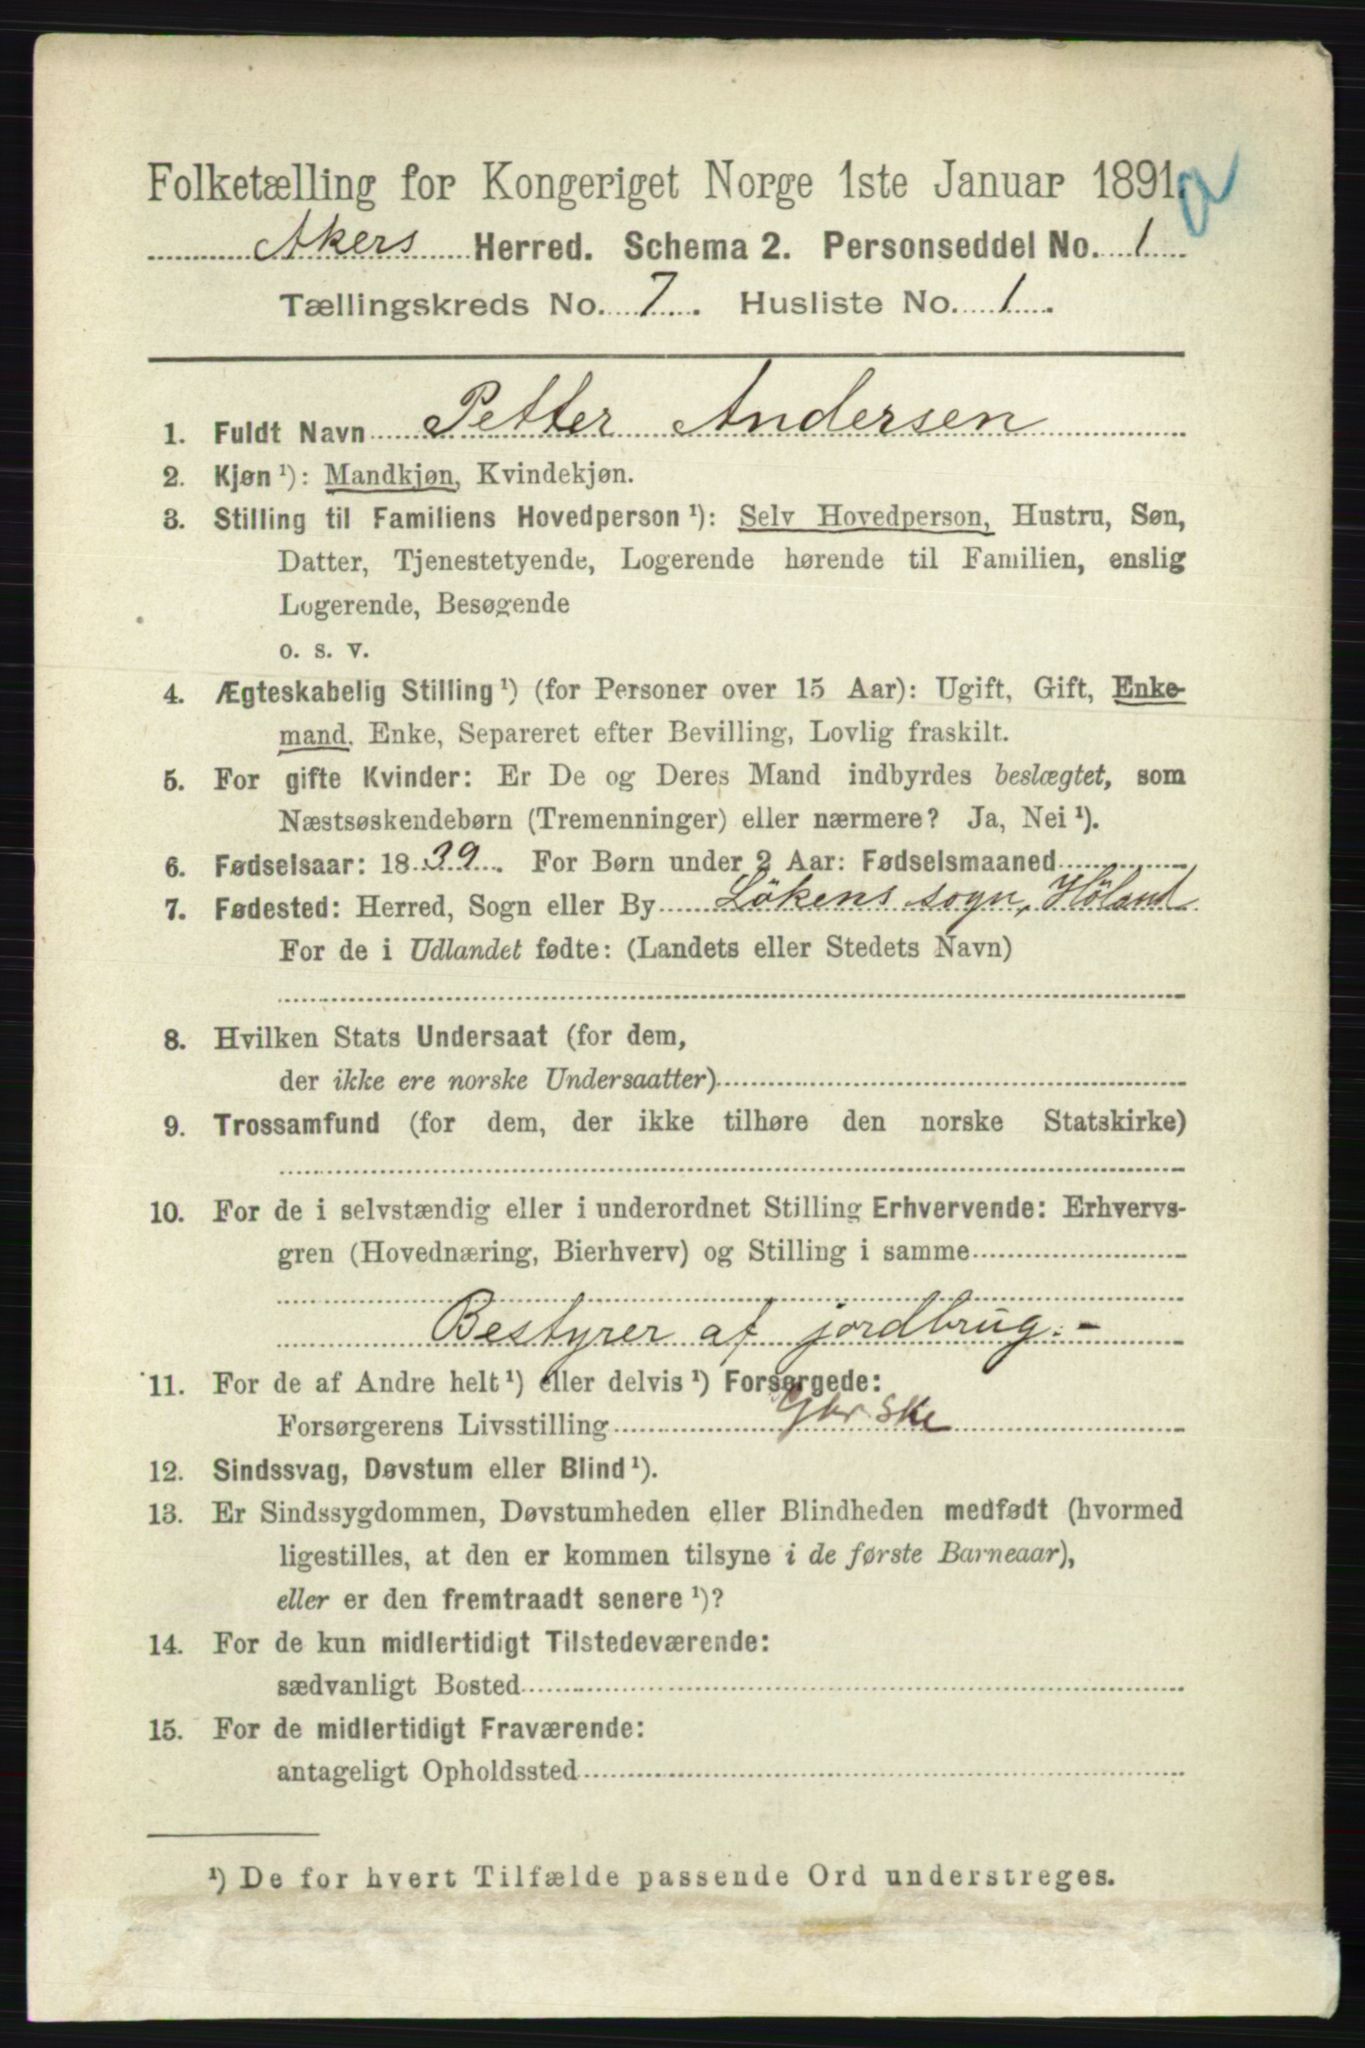 Folketælling for Kongeriget Norge 1ste Januar 1891.
Akers Herred. Schema 2. Personseddel No. 1
Tællingskreds No. 7. Husliste No. 1.
1. Fuldt Navn Petter Andersen
2. Kjøn ¹): Mandkjøn, Kvindekjøn.
3. Stilling til Familiens Hovedperson ¹): Selv Hovedperson, Hustru, Søn,
Datter, Tjenestetyende, Logerende hørende til Familien, enslig
Logerende, Besøgende
o. s. v.
4. Ægteskabelig Stilling ¹) (for Personer over 15 Aar): Ugift, Gift, Enke-
mand, Enke, Separeret efter Bevilling, Lovlig fraskilt.
5. For gifte Kvinder: Er De og Deres Mand indbyrdes beslægtet, som
Næstsøskendebørn (Tremenninger) eller nærmere? Ja, Nei ¹).
6. Fødselsaar: 1839. For Børn under 2 Aar: Fødselsmaaned
7. Fødested: Herred, Sogn eller By Lökens sogn, Höland
For de i Udlandet fødte: (Landets eller Stedets Navn)
8. Hvilken Stats Undersaat (for dem,
der ikke ere norske Undersaatter)
9. Trossamfund (for dem, der ikke tilhøre den norske Statskirke)
10. For de i selvstændig eller i underordnet Stilling Erhvervende: Erhvervs-
gren (Hovednæring, Bierhverv) og Stilling i samme
Bestyrer af jordbrug. -
11. For de af Andre helt ¹) eller delvis ¹) Forsørgede:
Forsørgerens Livsstilling
12. Sindssvag, Døvstum eller Blind ¹).
13. Er Sindssygdommen, Døvstumheden eller Blindheden medfødt (hvormed
ligestilles, at den er kommen tilsyne i de første Barneaar),
eller er den fremtraadt senere ¹)?
14. For de kun midlertidigt Tilstedeværende:
sædvanligt Bosted
15. For de midlertidigt Fraværende:
antageligt Opholdssted
¹) De for hvert Tilfælde passende Ord understreges.